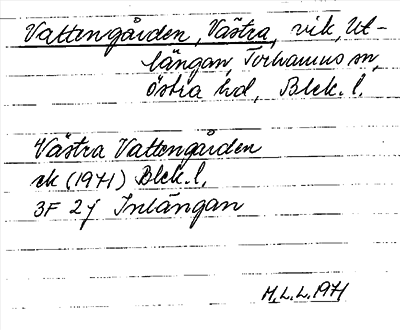 Vattengården, Västra, vik, Ut-
längan, Torhamns sn,
Östra hd, Blek. l.
Västra Vattengården
ek (1971) Blek. l.
3F 2j Inlängan
M.L.L. 1971